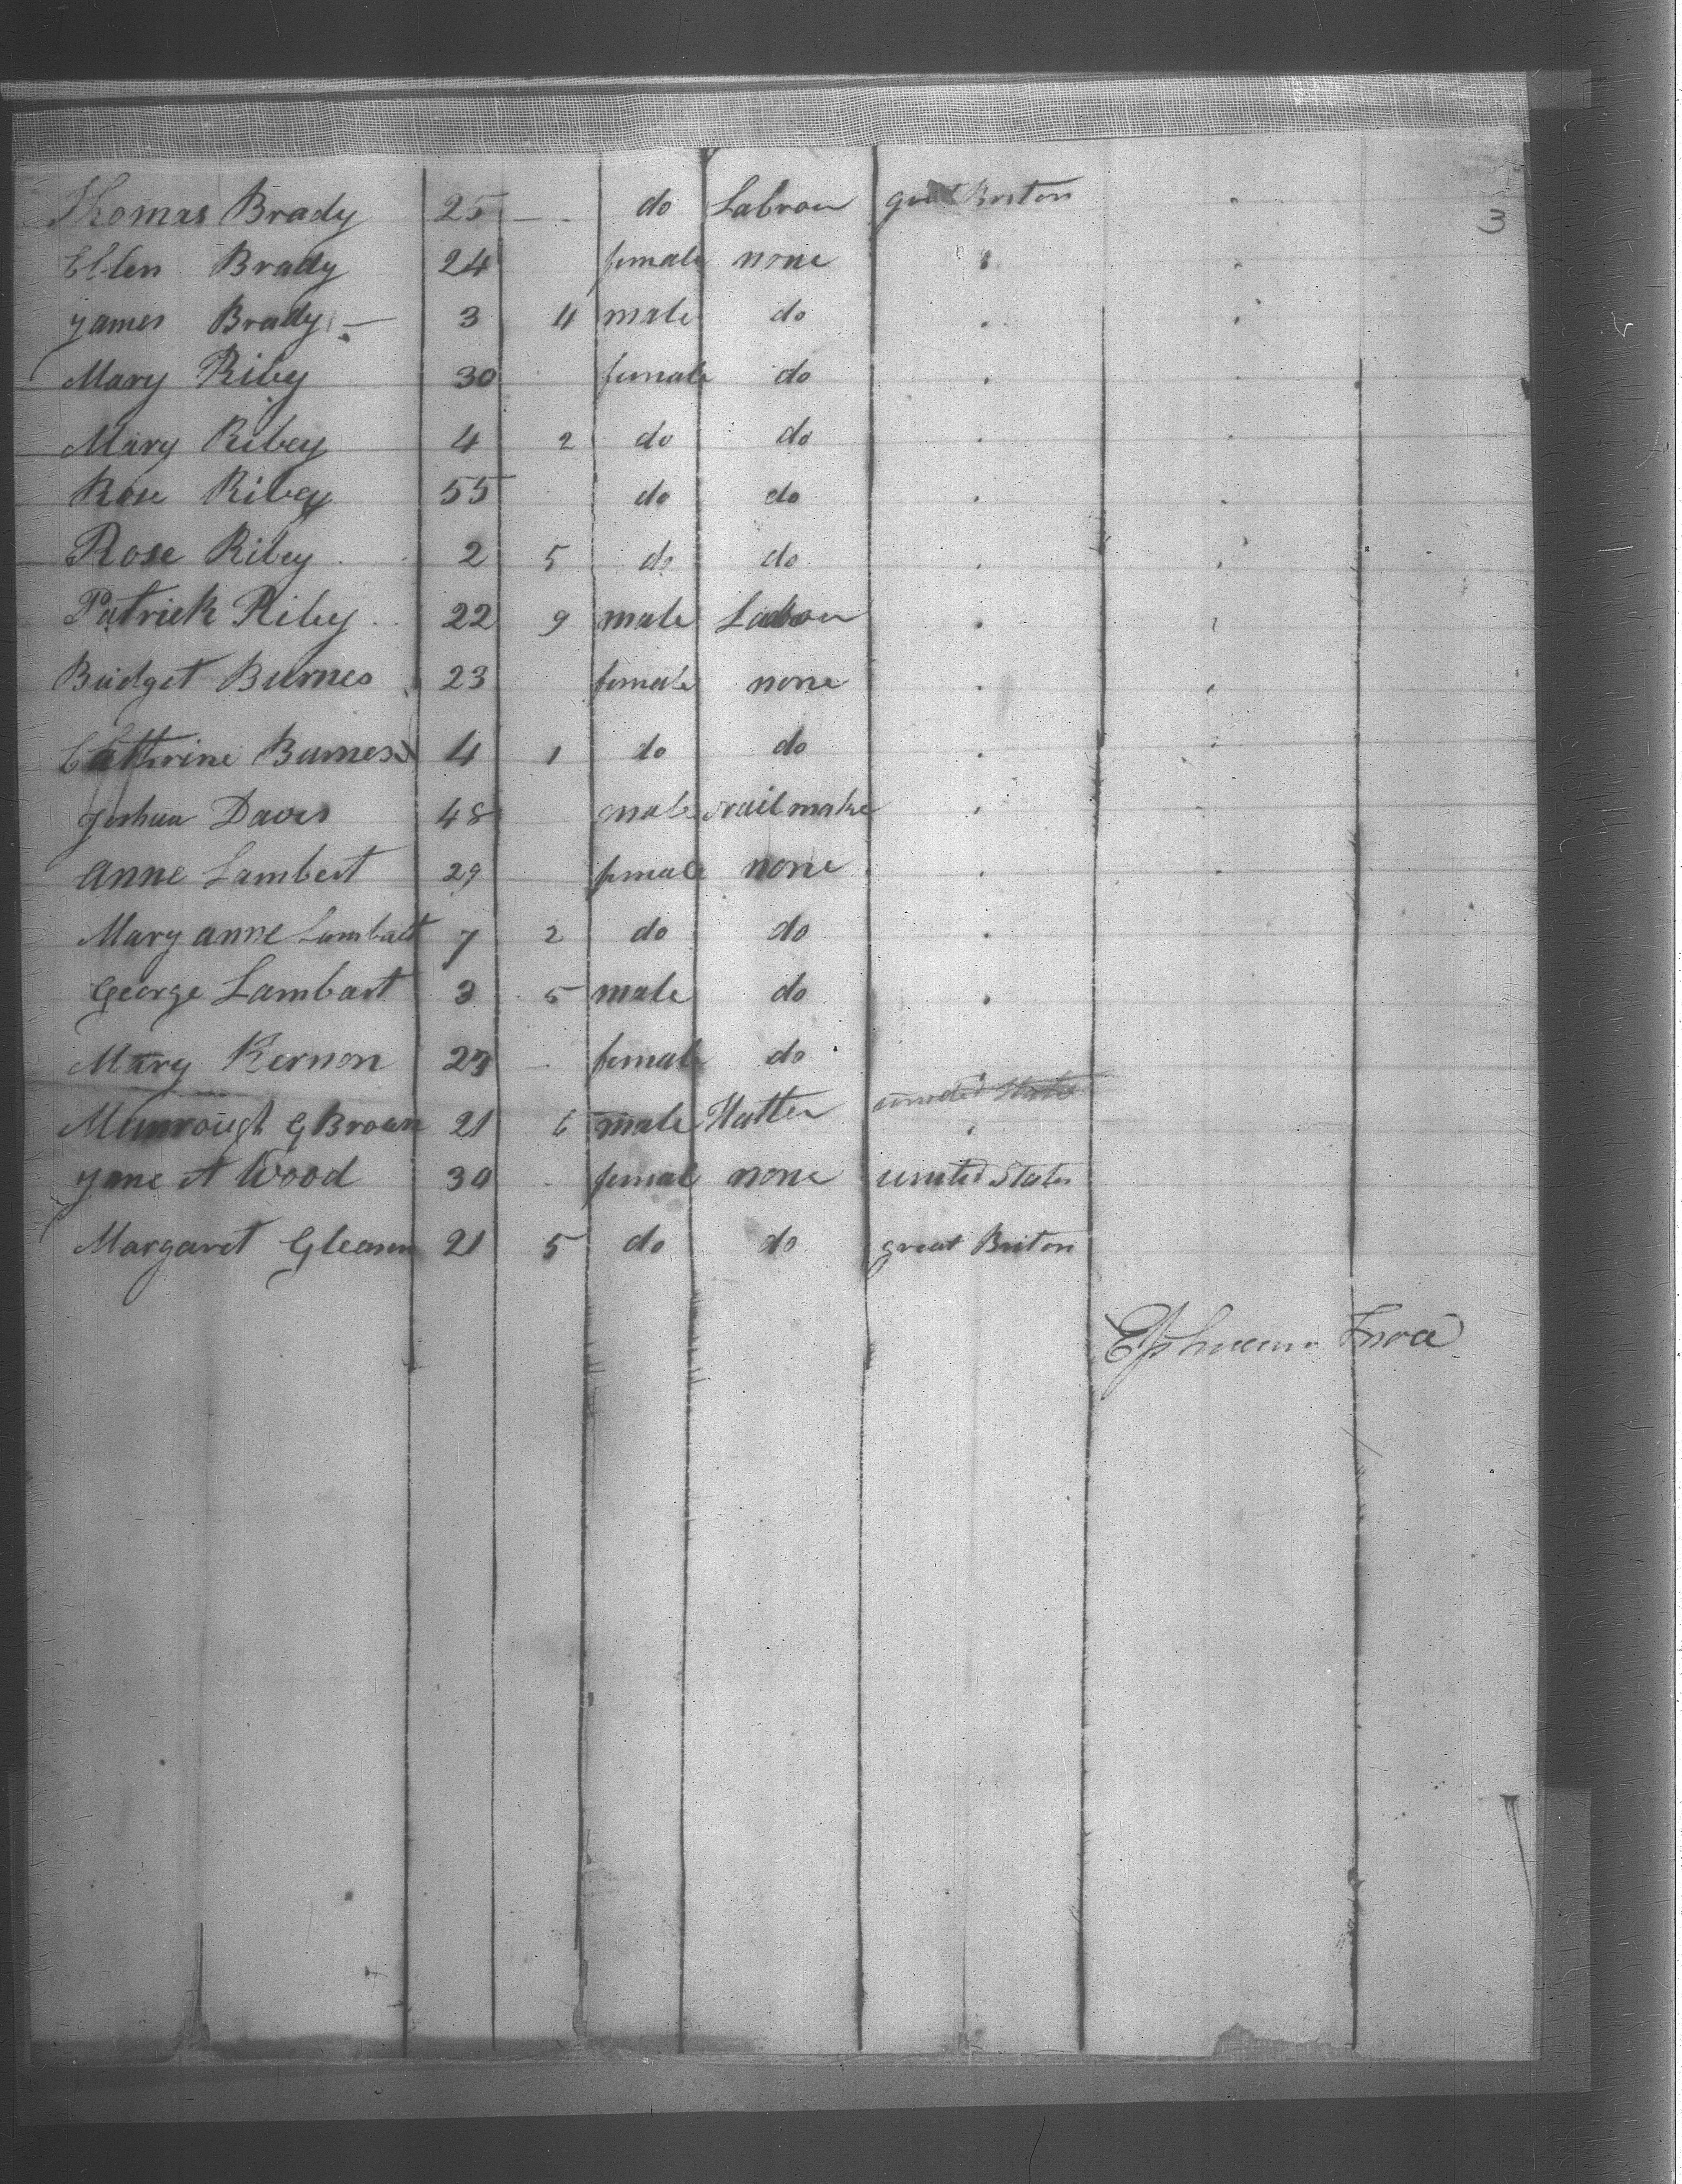 Thomas Brady 25 — - do Labrour great Briton "
3
Ellen Brady 24 female none " "
James Brady — 3 4 male do " "
Mary Riley 30 female do " "
Mary Riley 4 2 do do " "
Rose Riley 55 do do " "
Rose Riley 2 5 do do " "
Patrick Riley 22 9 male Labour " "
Bridget Burnes 23 female none " "
Cathrine Burnes 4 1 do do " "
Joshua Davis 48 male sailmake " "
Anne Lambert 29 female none " "
Mary anne Lambart 7 2 do do "
George Lambart 3 5 male do "
Mary Kernon 29 - female do
Munrough G Brown 21 6 male Hatter united States "
Jane A Wood 30 - female none united States
Margaret Gleason 21 5 do do great Briton
Ephraim